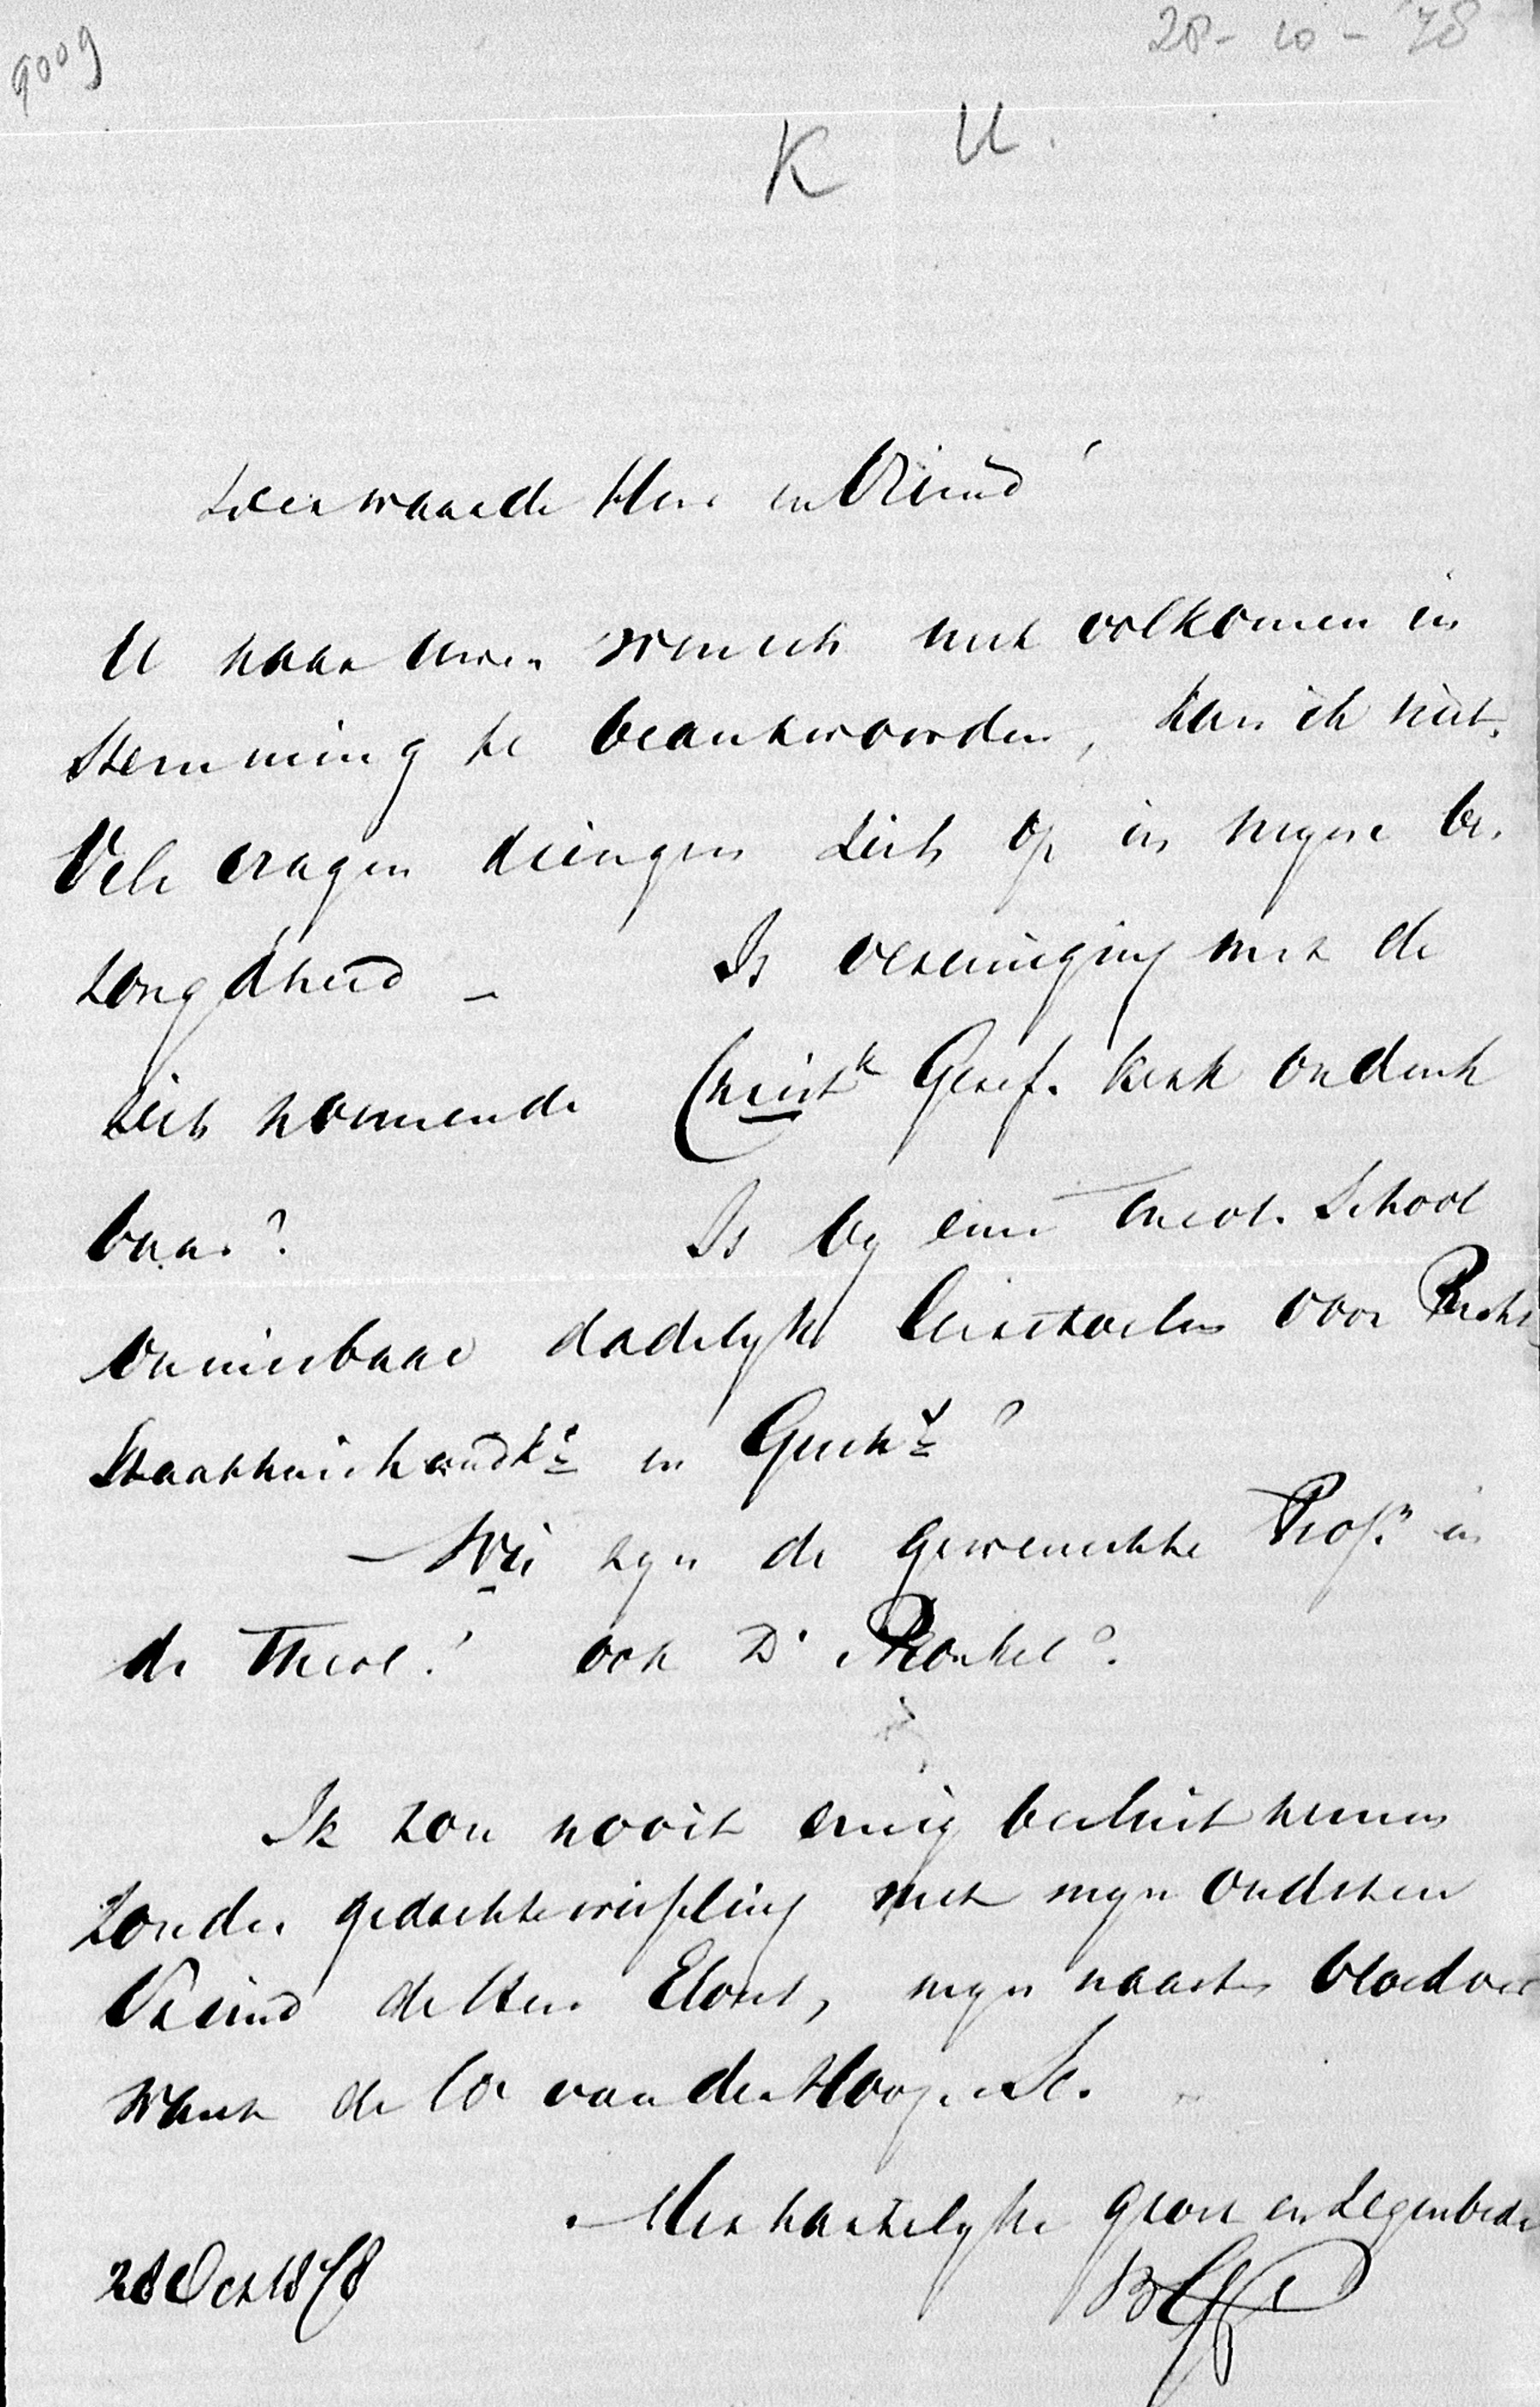 9009
28-10-'78
K U.
Zeer waarde Heer en Vriend!
U naar uwen wensch met volkomen in
stemming te beantwoorden, kan ik niet.
Vele vragen dringen zich op in mijne be-
zorgdheid - Is vereeniging met de
zich noemende Christ<sup>e</sup> Geref. Kerk ondenk
baar? Is by eene Theol. School
onmisbaar dadelyk leerstoelen voor Recht
Staathuishoudk<sup>e</sup> en
- Wie zyn de gewenschte Prof<sup>n</sup> in
de Theol.? ook Dr Kronkel?
Ik zou nooit eenig besluit nemen
zonder gedachtewisseling met myn oudsten
Vriend de Heer Elout, myn naasten bloedver
want de Hr van der Hoop. Sc.
Met hartelyke groet en zegenbede
28 Oct 1878